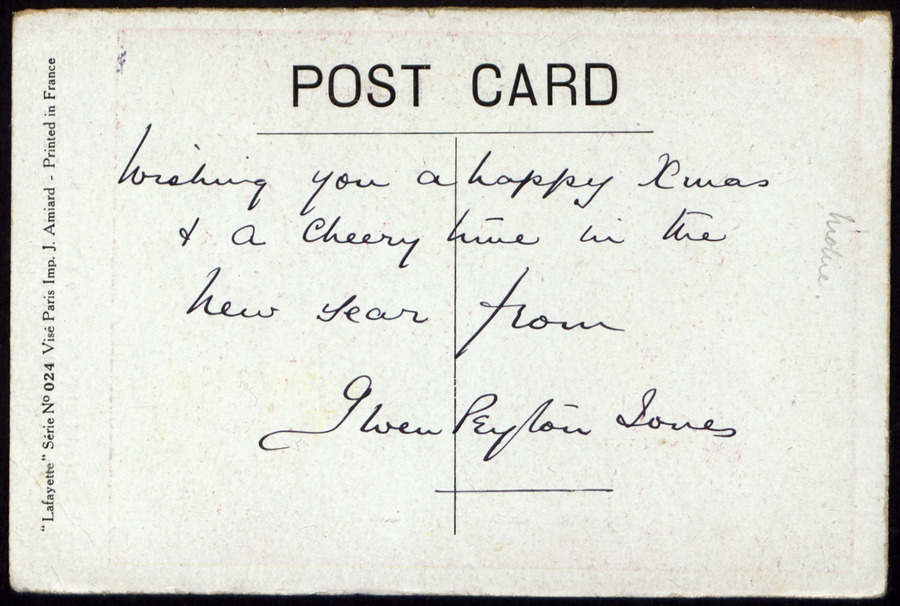 POST CARD
Wishing you a happy Xmas
& a Cheery time in the
New Year from
Gwen Peyton Jones
"Lafayette" Série Nº 024 Visé Paris Imp. J. Amiard - Printed in France